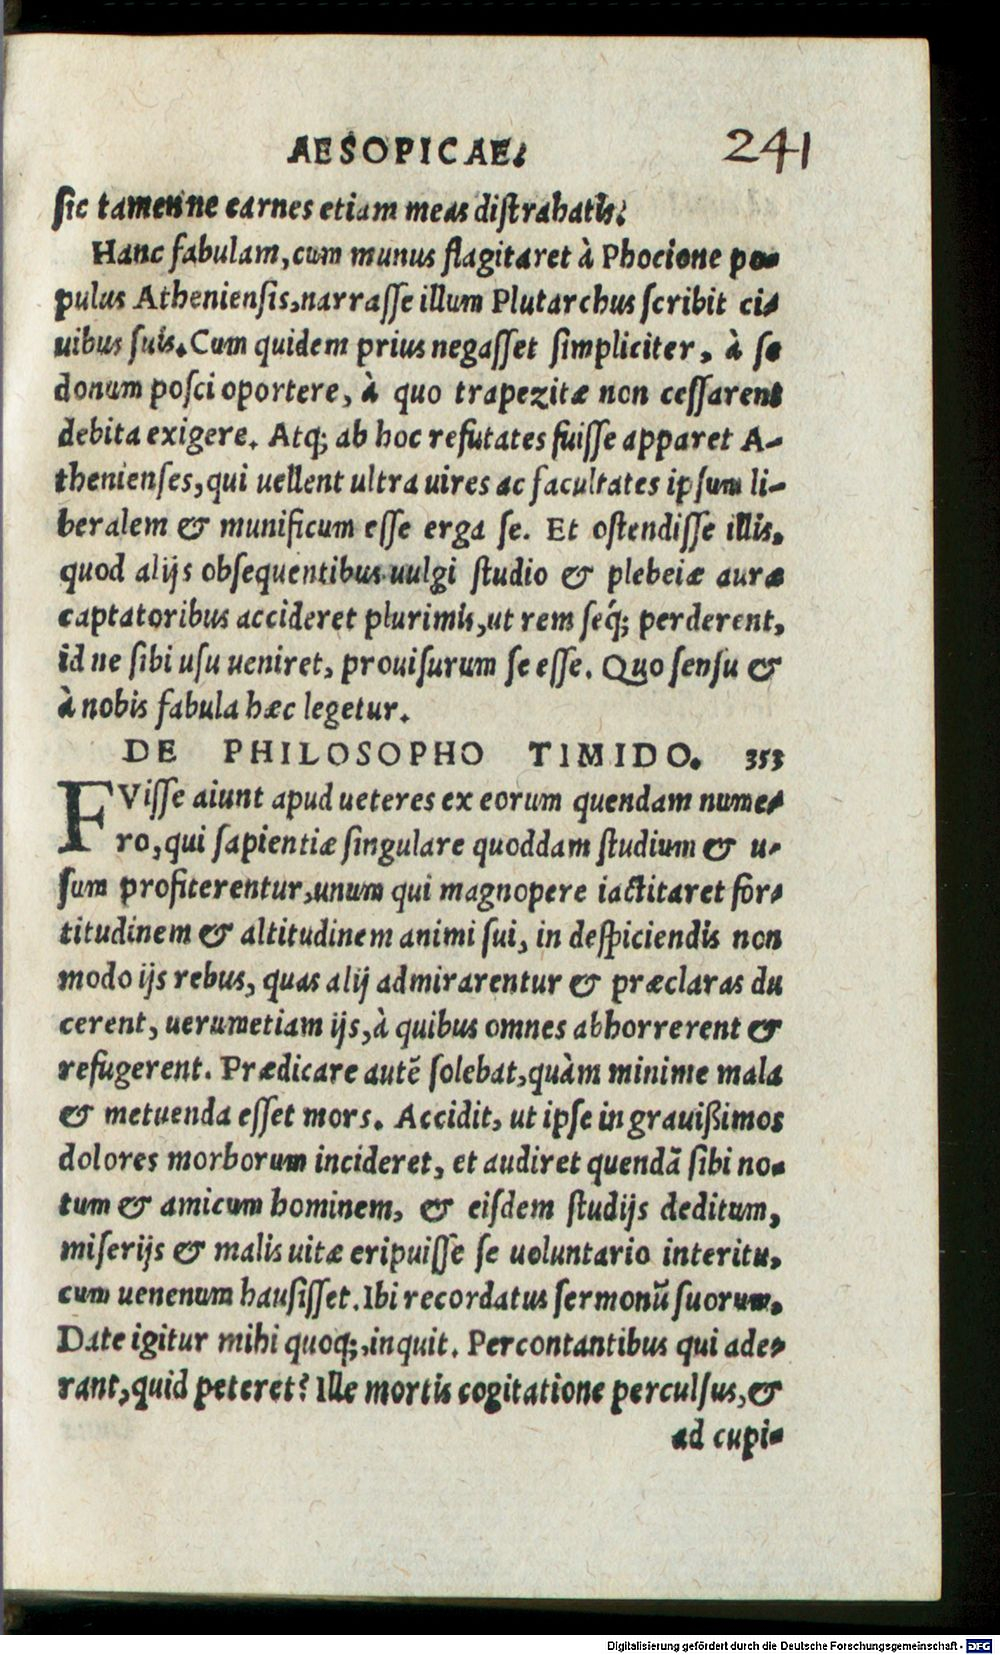 AESOPICAE. 241
sic tamenne carnes etiam meas distrahatis?
Hanc fabulam, cum munus flagitaret à Phocione po-
pulus Atheniensis, narrasse illum Plutarchus scribit ci-
uibus suis. Cum quidem prius negasset simpliciter, à se
donum posci oportere, à quo trapezitæ non cessarent
debita exigere. Atq; ab hoc refutates fuisse apparet A-
thenienses, qui uellent ultra uires ac facultates ipsum li-
beralem & munificum esse erga se. Et ostendisse illis,
quod alijs obsequentibus uulgi studio & plebeiæ auræ
captatoribus accideret plurimis, ut rem séq; perderent,
id ne sibi usu ueniret, prouisurum se esse. Quo sensu &
à nobis fabula hæc legetur.
DE PHILOSOPHO TIMIDO. 353
FVisse aiunt apud ueteres ex eorum quendam nume-
ro, qui sapientiæ singulare quoddam studium & u-
sum profiterentur, unum qui magnopere iactitaret for-
titudinem & altitudinem animi sui, in despiciendis non
modo ijs rebus, quas alij admirarentur & præclaras du
cerent, uerumetiam ijs, à quibus omnes abhorrerent &
refugerent. Prædicare autē solebat, quàm minime mala
& metuenda esset mors. Accidit, ut ipse in grauißimos
dolores morborum incideret, et audiret quendā sibi no-
tum & amicum hominem, & eisdem studijs deditum,
miserijs & malis uitæ eripuisse se uoluntario interitu,
cum uenenum hausisset. Ibi recordatus sermonū suorum.
Date igitur mihi quoq;, inquit. Percontantibus qui ade-
rant, quid peteret? Ille mortis cogitatione perculsus, &
ad cupi-
Digitalisierung gefördert durch die Deutsche Forschungsgemeinschaft - DFG